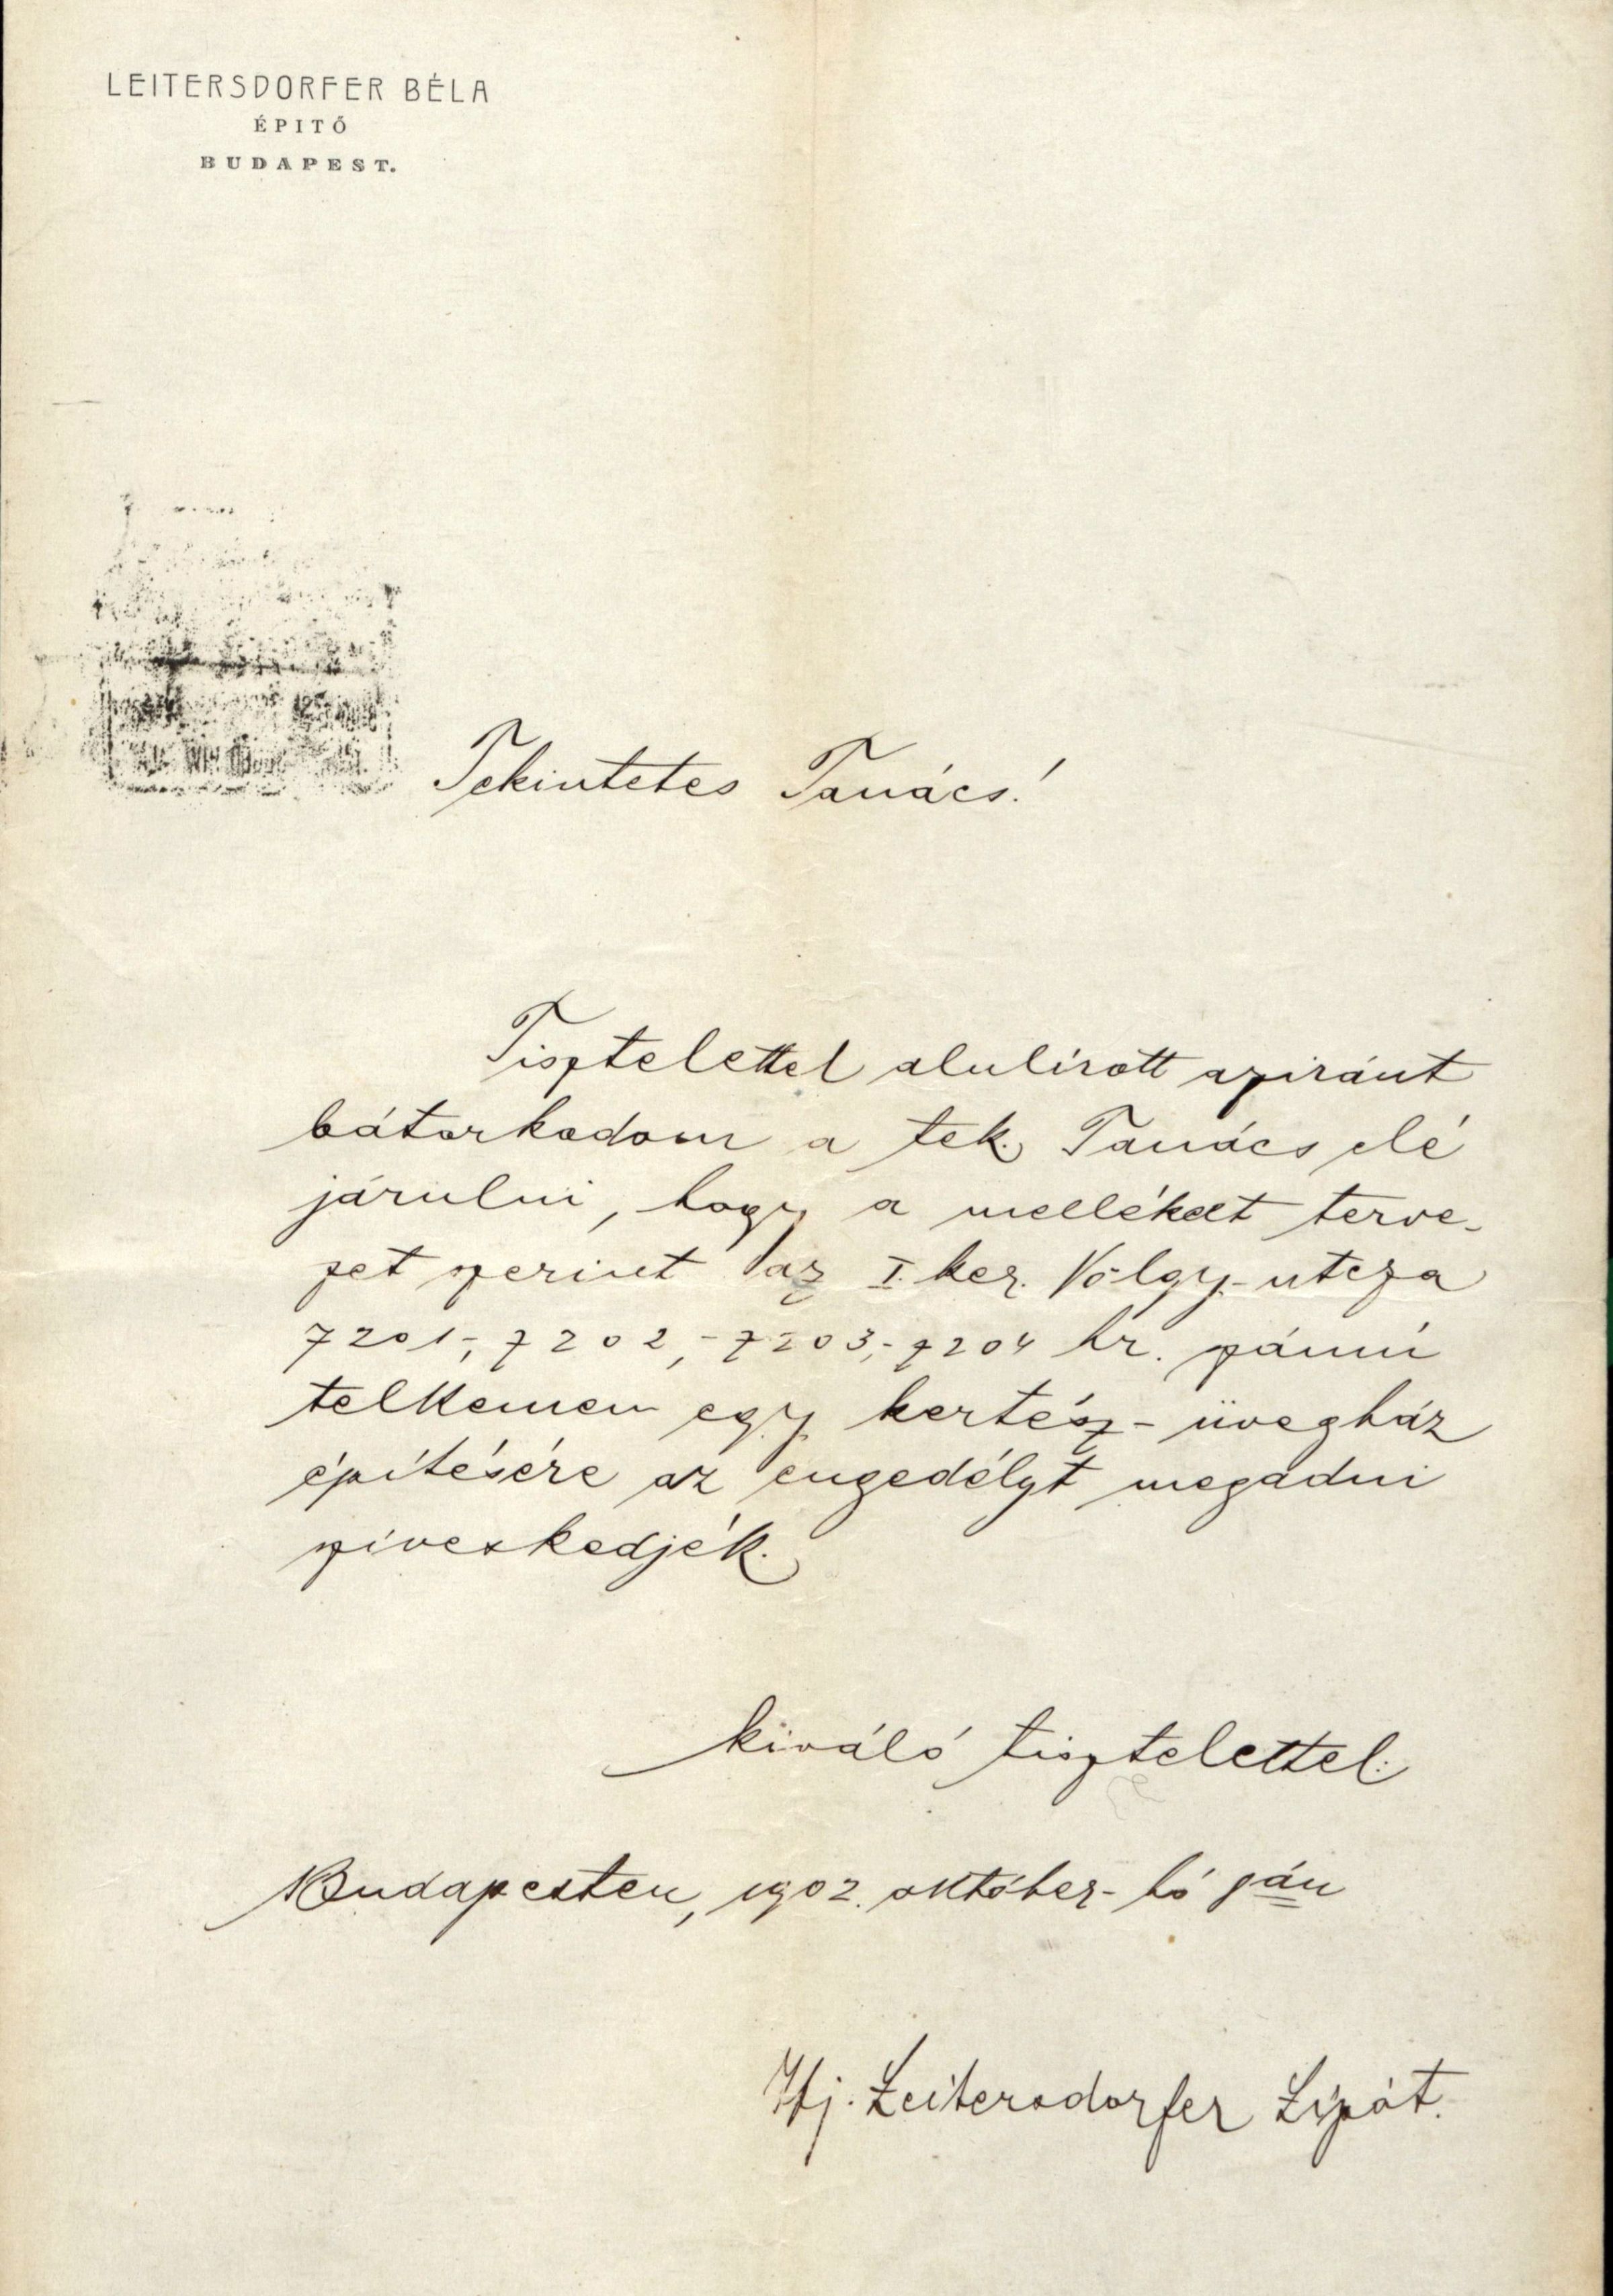 LEITERSDORFER BÉLA
ÉPITŐ
BUDAPEST.
Tekintetes Tanács!
Tisztelettel alulírott aziránt
bátorkodom a tek. Tanács elé
járulni, hogy a mellékelt terve-
zet szerint az I. ker. Völgy-utcza
7201,- 7202,- 7203,- 7204 hr. számú
telkemen egy kertész-üvegház
építésére az engedélyt megadni
szíveskedjék.
kiváló tisztelettel:
Budapesten, 1902. október-hó
Ifj. Leitersdorfer Lipót.